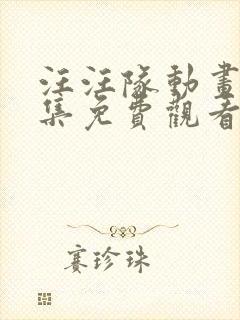 汪汪隊動畫
集免費觀看
賽珍珠